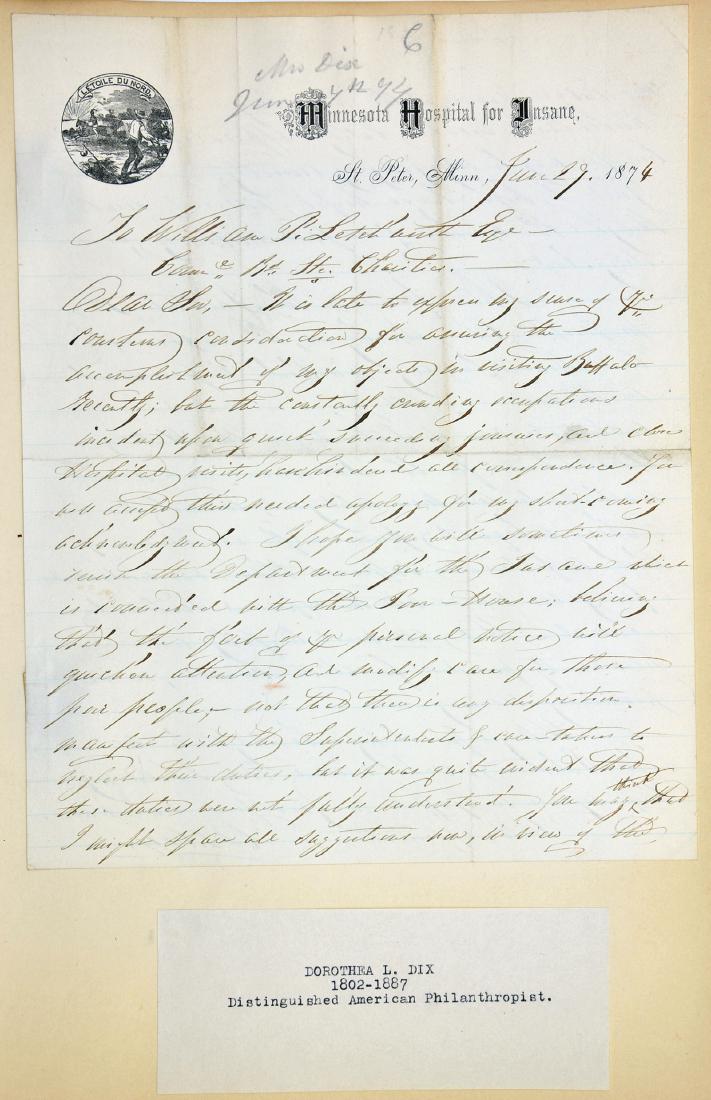 L'ETOILE DU NORD
6
Mrs Dix
Minnesota Hospital for Insane,
St. Peter, Minn, June 29. 1874
To William P. Letchworth Esqr —
Bd. Ste. Charities. —
Dear Sir, — It is late to express my sense of yr
courteous consideration for assuring the
accomplishment of my objects in visiting Buffalo
recently; but the constantly crowding occupations
incident upon quick succeeding journeys, and close
Hospital visits, have hindered all correspondence. You
will accept this needed apology for my short-coming
acknowledgment. I hope you will sometimes
visit the Department for the Insane which
is connected with the Poor-House; believing
that the fact of yr personal notice will
quicken attention, and modify care for those
poor people, — not that there is any disposition
manifest with the Superintendents & care-takers to
neglect their duties, but it was quite evident that
these duties were not fully understood. You may think that
I might spare all suggestions now, in view of the
DOROTHEA L. DIX
1802-1887
Distinguished American Philanthropist.